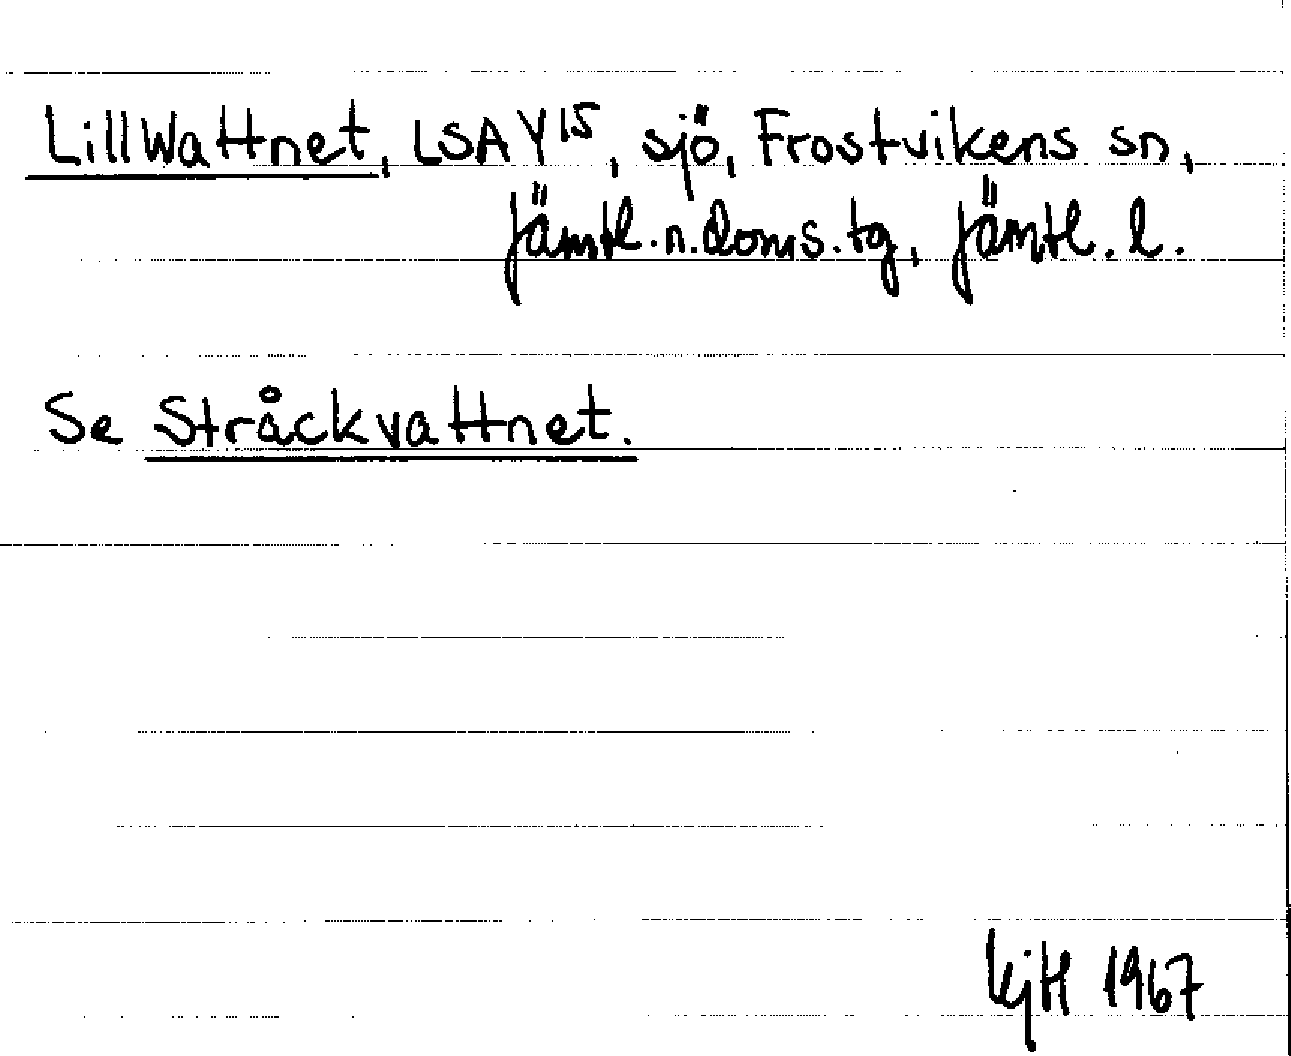 LillWattnet, LSA Y15, sjö, Frostvikens sn,
Jämtl. n. doms. tg, Jämtl. l.
Se Stråckvattnet.
KjH 1967